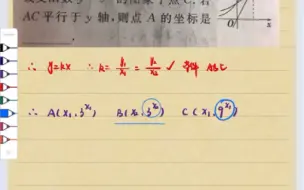 的图象于点 C. 若
AC 平行于 y 轴，则点 A 的坐标是
O x
∴ y=kx ∴ k = y₁/x₁ = y₂/x₂ ✓ ABC
∴ A(x₁, 3^x₁) B(x₂, 3^x₂) C(x₁, 9^x₁)